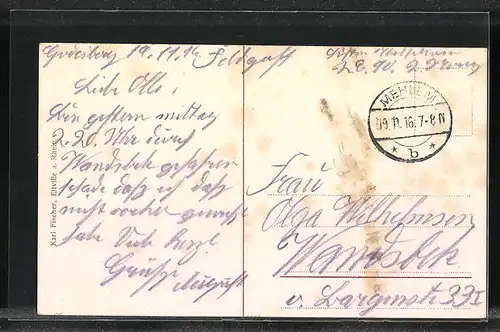 Godesberg 19.11.16 Feldpost
Liebe Olle!
Bin gestern mittag
2.20. Uhr durch
Wandsbek gefahren
schade daß ich daß
nicht vorher gewußt
habe Viele herzl
Grüße
August
Karl Fischer, Eltville a. Rhein
MEHLEM
09.11.16.7-8N
* b *
Frau
Olga Wilhelmsen
Wandsbek
v. Bargenstr. 33 I